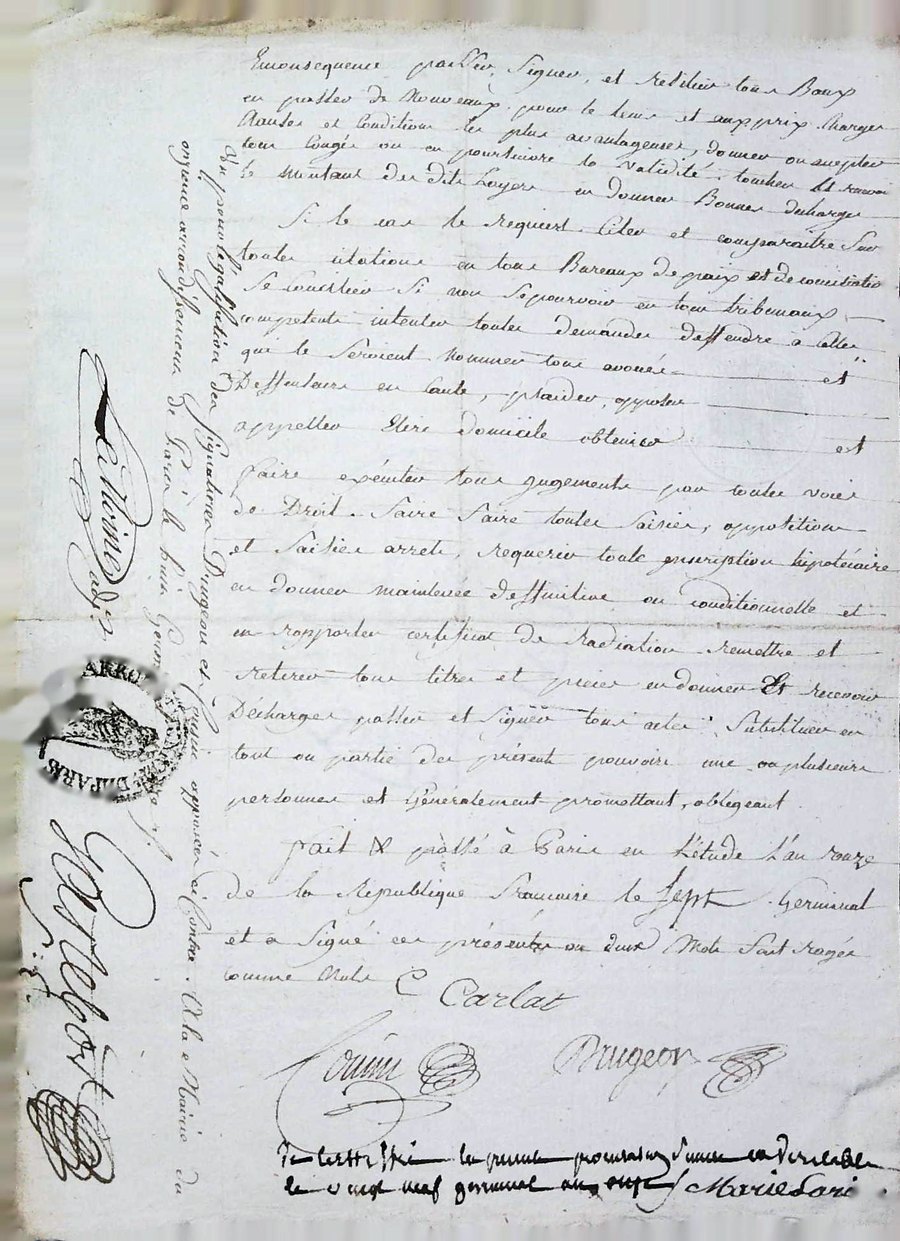 En consequence passer, signer, et rétilier tous Baux
en passer de Nouveaux pour le tems et aux prix Charges
Clauses et Conditions les plus avantageuses, donner ou accepter
tous Congés ou en poursuivre la validité, toucher et recevoir
le Montant des dits Loyers en donner Bonnes décharges
Si le cas le requiert. Citer et comparaître sur
toutes citations en tous Bureaux de paix et de conciliation
Se concilier Si non se pourvoir en tous tribunaux
competents intenter toutes demandes deffendre à celles
qui le Seroient. Nommer tous avoués et
Deffenseurs en Cause, plaider, opposer
appeller Elire domicile obtenir et
faire exécuter tous jugements par toutes voies
de Droit. Faire faire toutes Saisies, opposition
et Saisies arrets, requerir toute inscription hipotécaire
en donner mainlevée deffinitive ou conditionnelle et
en rapporter certificat de Radiation remettre et
retirer tous titres et pieces en donner Et recevoir
Décharges passer et Signer tous actes. Substituer en
tout ou partie des présent pouvoirs une ou plusieurs
personnes et Généralement promettant, obligeant.
fait & passé à Paris en l'étude L'an onze
de la République francaise le Sept Germinal
et a Signé ces présentes ou deux Mots Sont rayés
comme Nuls
C Carlat
Drugeon
la presente procuration
le vingt neuf germinal an onze Marie
Vu pour légalisation des Signatures Drugeon et apposées ci Contre. A la Mairie du
onzieme arrondissement de Paris le huit
Lehoine adj.
ARRO
DE PARIS